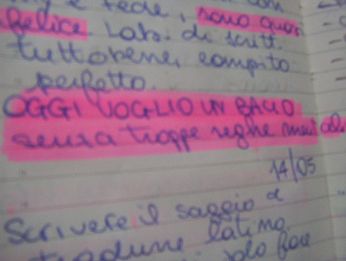 e fede, sono quasi
felice. Lab. di scritt.
tutto bene, compito
perfetto.
OGGI VOGLIO UN BACIO
senza troppe seghe mentali.
14/05
Scrivere il saggio e
tradurre latino.
solo fare